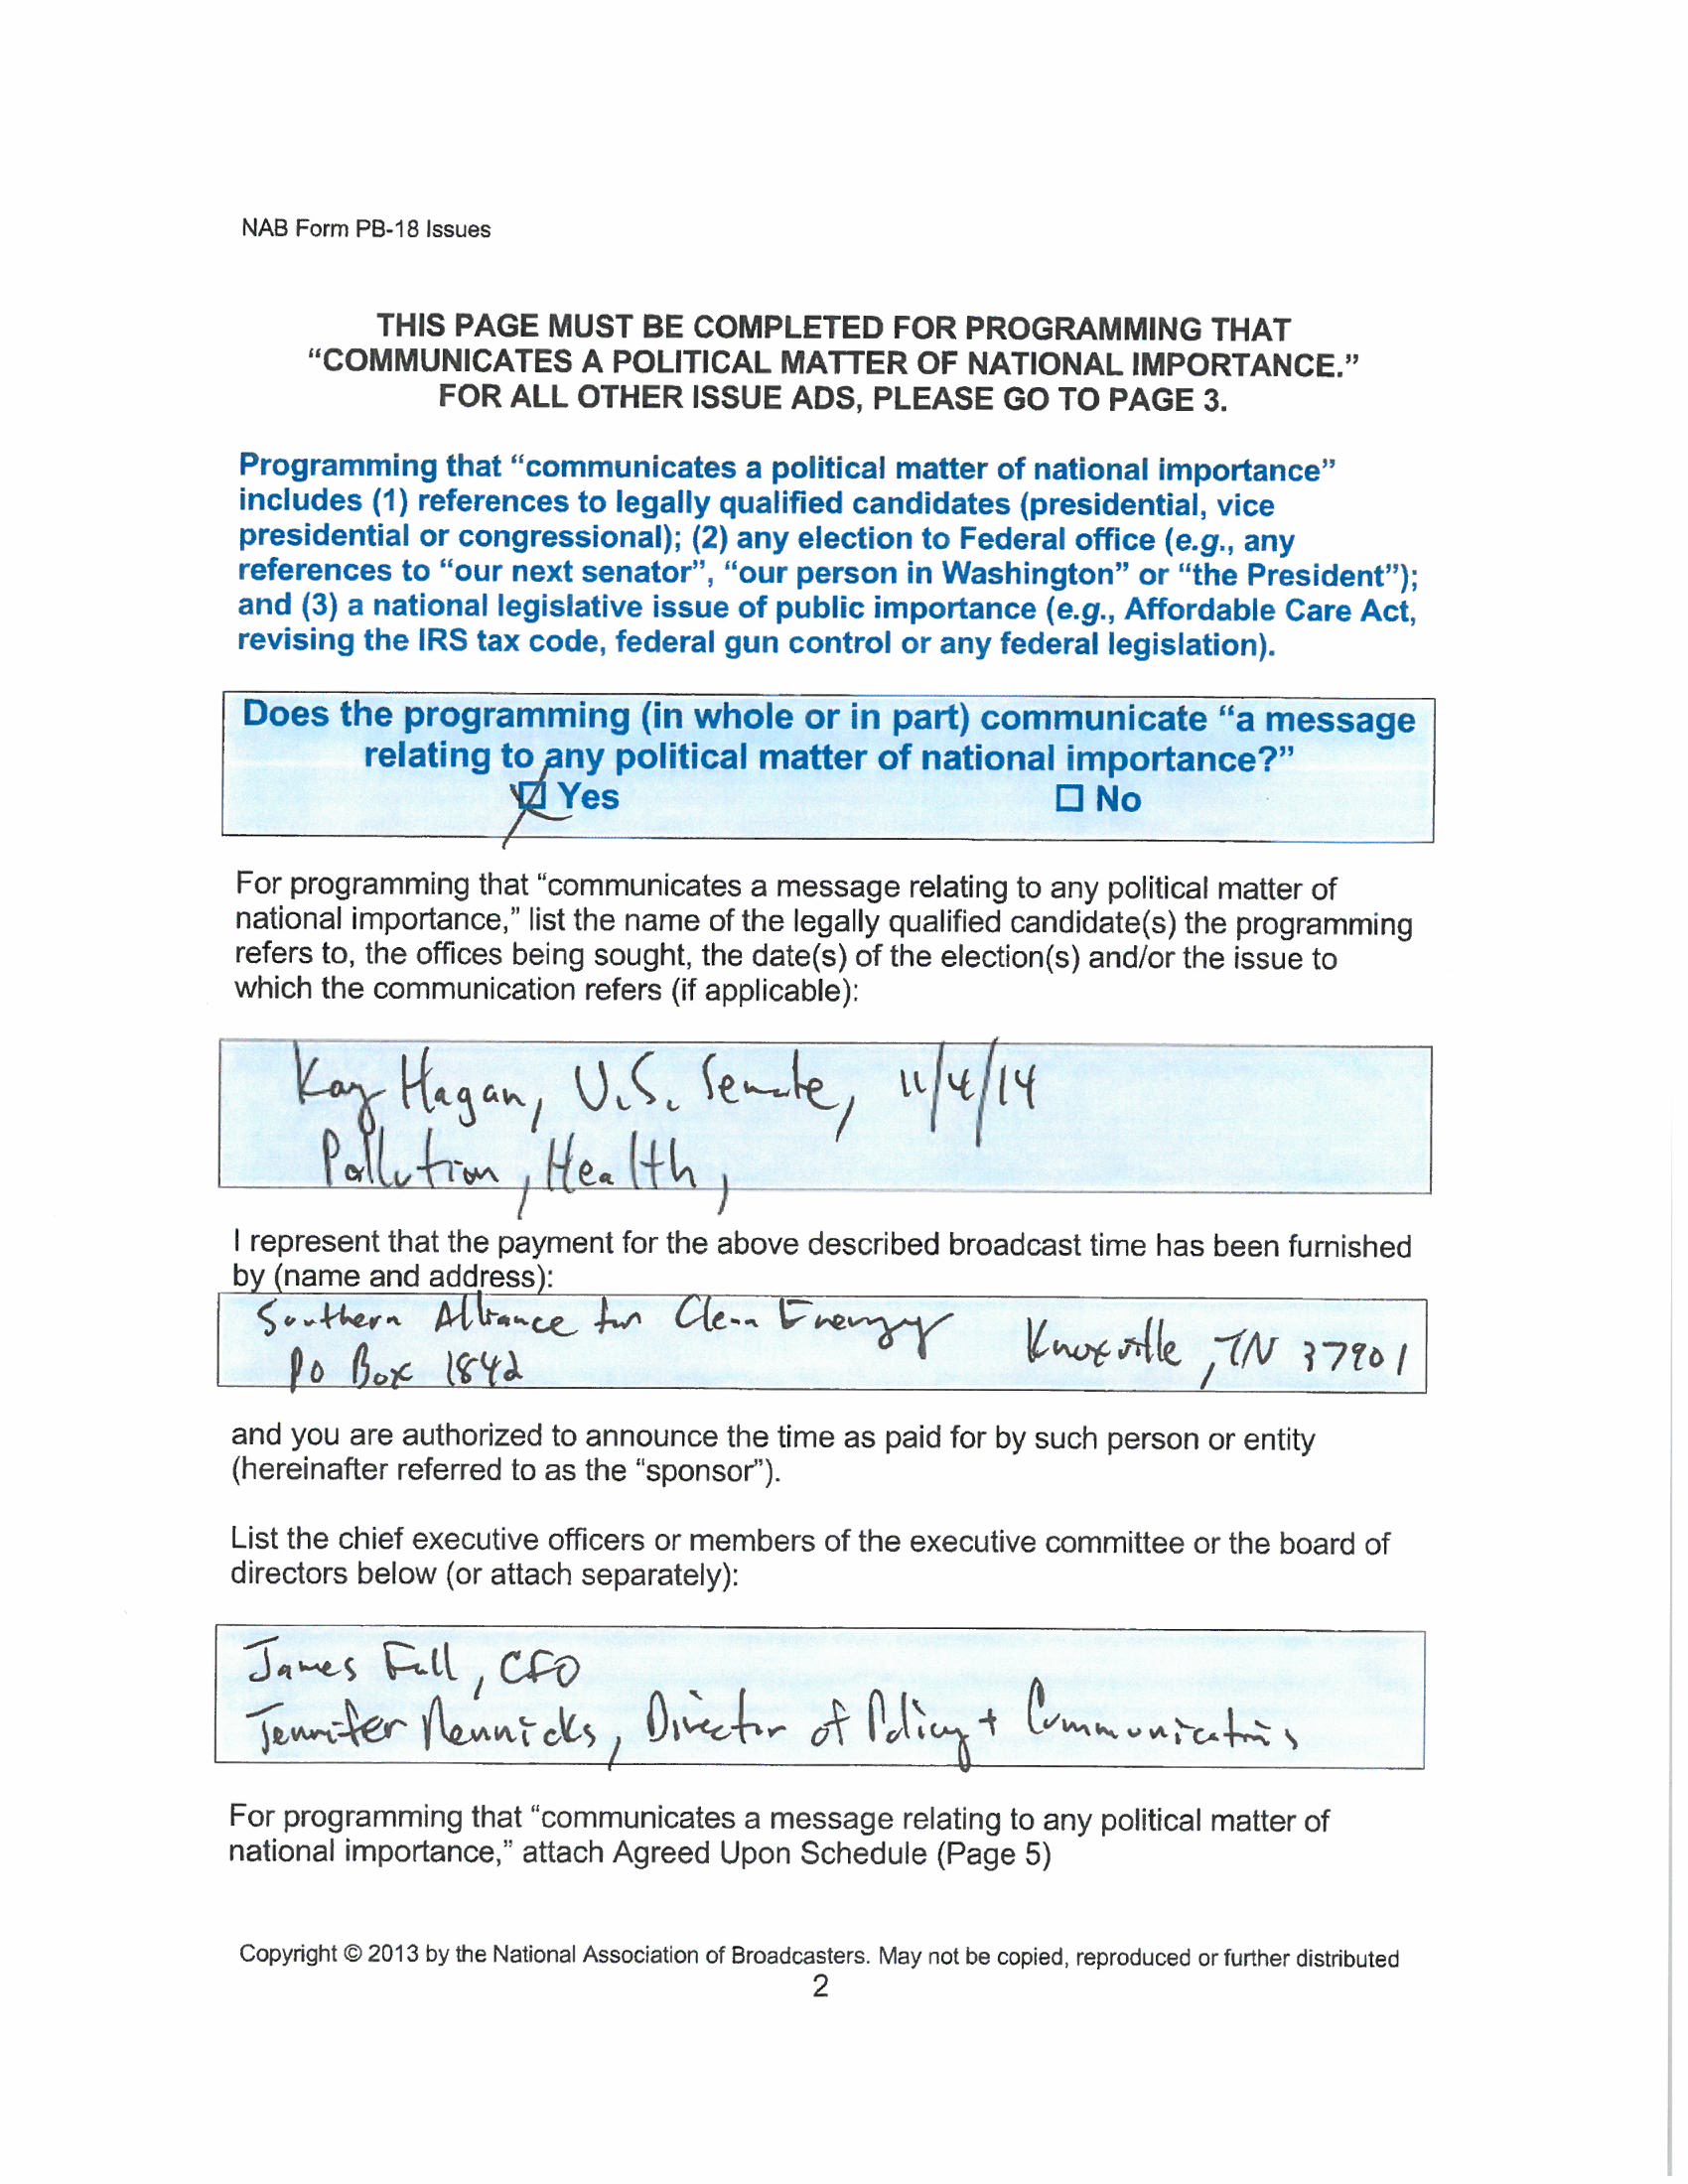 NAB Form PB-18 Issues
THIS PAGE MUST BE COMPLETED FOR PROGRAMMING THAT
“COMMUNICATES A POLITICAL MATTER OF NATIONAL IMPORTANCE.”
FOR ALL OTHER ISSUE ADS, PLEASE GO TO PAGE 3.
Programming that “communicates a political matter of national importance”
includes (1) references to legally qualified candidates (presidential, vice
presidential or congressional); (2) any election to Federal office (e.g., any
references to “our next senator”, “our person in Washington” or “the President”);
and (3) a national legislative issue of public importance (e.g., Affordable Care Act,
revising the IRS tax code, federal gun control or any federal legislation).
Does the programming (in whole or in part) communicate “a message
relating to any political matter of national importance?”
☒ Yes ☐ No
For programming that “communicates a message relating to any political matter of
national importance,” list the name of the legally qualified candidate(s) the programming
refers to, the offices being sought, the date(s) of the election(s) and/or the issue to
which the communication refers (if applicable):
Kay Hagan, U.S. Senate, 11/4/14
Pollution, Health,
I represent that the payment for the above described broadcast time has been furnished
by (name and address):
Southern Alliance for Clean Energy
PO Box 1842 Knoxville, TN 37901
and you are authorized to announce the time as paid for by such person or entity
(hereinafter referred to as the “sponsor”).
List the chief executive officers or members of the executive committee or the board of
directors below (or attach separately):
James Fall, CFO
Jennifer Rennicks, Director of Policy + Communications
For programming that “communicates a message relating to any political matter of
national importance,” attach Agreed Upon Schedule (Page 5)
Copyright © 2013 by the National Association of Broadcasters. May not be copied, reproduced or further distributed
2